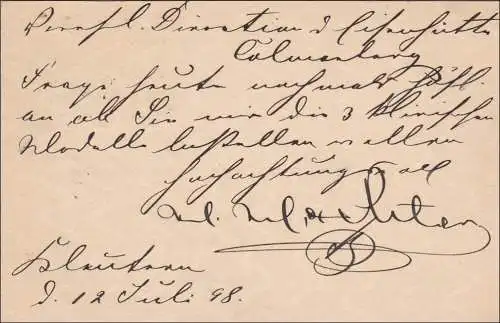 Verehl. Direction d Eisenhütte
Colmarberg
Frage heute nochmals höfl.
an ob Sie mir die 3 kleinischen
Modelle bestellen wollen
Hochachtungsvoll
M.
Kleutern
d. 12 Juli 98.